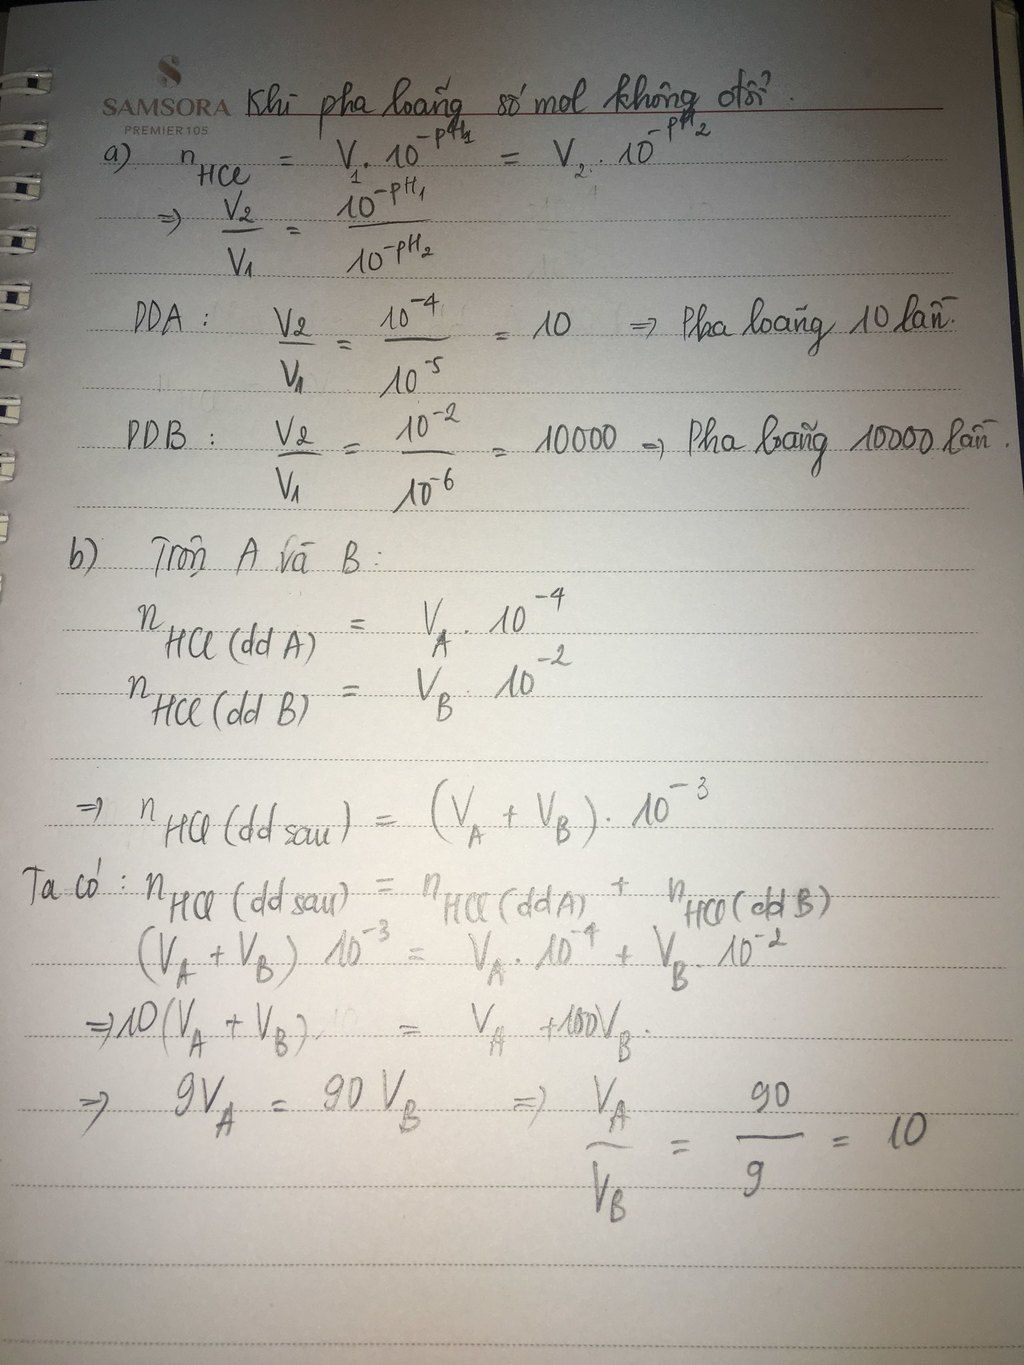 SAMSORA
PREMIER 105
Khi pha loãng số mol không đổi.
a) n HCl = V₁. 10^-pH₁ = V₂. 10^-pH₂
=> V₂/V₁ = 10^-pH₁/10^-pH₂
DDA : V₂/V₁ = 10^-4/10^-5 = 10 => Pha loãng 10 lần.
DDB : V₂/V₁ = 10^-2/10^-6 = 10000 => Pha loãng 10000 lần.
b) Trộn A và B :
n HCl (dd A) = V_A. 10^-4
n HCl (dd B) = V_B. 10^-2
=> n HCl (dd sau) = (V_A + V_B). 10^-3
Ta có : n HCl (dd sau) = n HCl (dd A) + n HCl (dd B)
(V_A + V_B) 10^-3 = V_A. 10^-4 + V_B. 10^-2
=> 10 (V_A + V_B) = V_A + 100V_B.
=> 9V_A = 90 V_B => V_A/V_B = 90/9 = 10